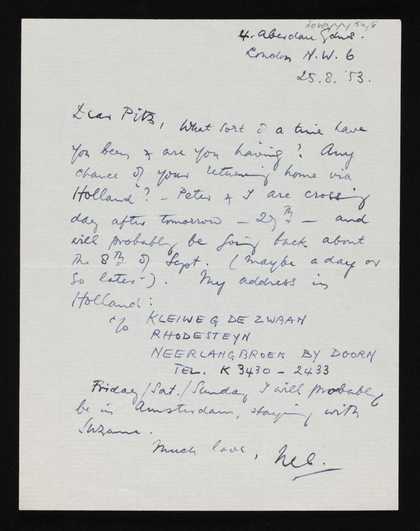 4. Aberdare Gdns.
London N.W. 6
25.8.'53.
Dear Pitz, What sort of a time have
you been & are you having? Any
chance of your returning home via
Holland? – Peter & I are crossing
day after tomorrow – 27th – and
will probably be going back about
the 8th of Sept. (maybe a day or
so later). My address in
Holland:
c/o KLEIWEG DE ZWAAN
RHODESTEYN
NEERLANGBROEK BY DOORN
TEL. K 3430 – 2433
Friday/Sat./Sunday I will probably
be in Amsterdam, staying with
Suzanne.
Much love,